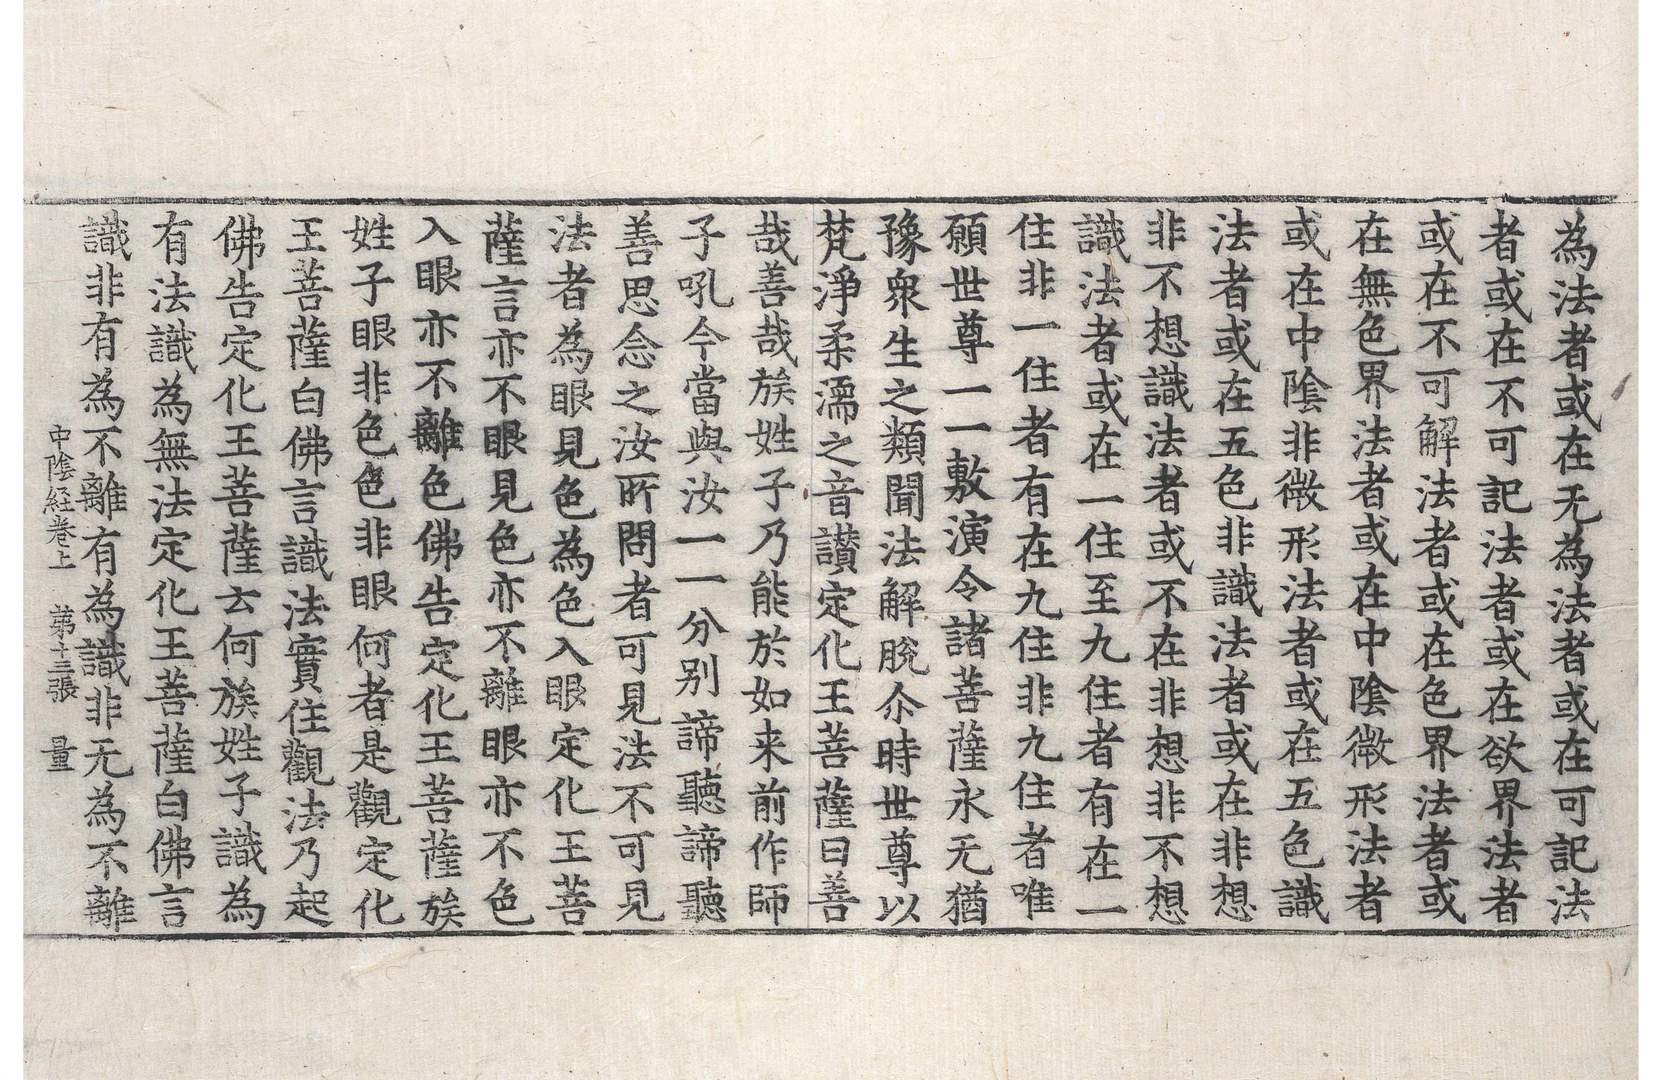 為法者或在无為法者或在可記法
者或在不可記法者或在欲界法者
或在不可解法者或在色界法者或
在無色界法者或在中陰微形法者
或在中陰非微形法者或在五色識
法者或在五色非識法者或在非想
非不想識法者或不在非想非不想
識法者或在一住至九住者有在一
住非一住者有在九住非九住者唯
願世尊一一敷演令諸菩薩永无猶
豫衆生之類聞法解脫尒時世尊以
梵淨柔濡之音讃定化王菩薩曰善
哉善哉族姓子乃能於如来前作師
子吼今當與汝一一分別諦聽諦聽
善思念之汝所問者可見法不可見
法者為眼見色為色入眼定化王菩
薩言亦不眼見色亦不離眼亦不色
入眼亦不離色佛告定化王菩薩族
姓子眼非色色非眼何者是觀定化
王菩薩白佛言識法實住觀法乃起
佛告定化王菩薩云何族姓子識為
有法識為無法定化王菩薩白佛言
識非有為不離有為識非无為不離
中陰経卷上 第十三張 量